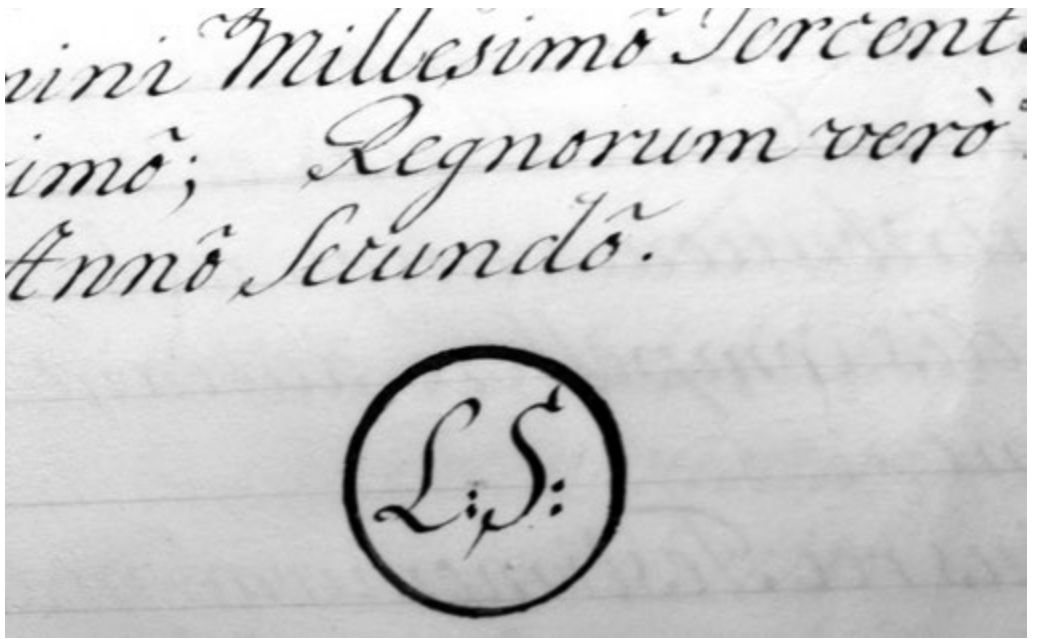 mini Millesimõ Tercent
imõ; Regnorum verò
Annõ Secundõ.
L:S: